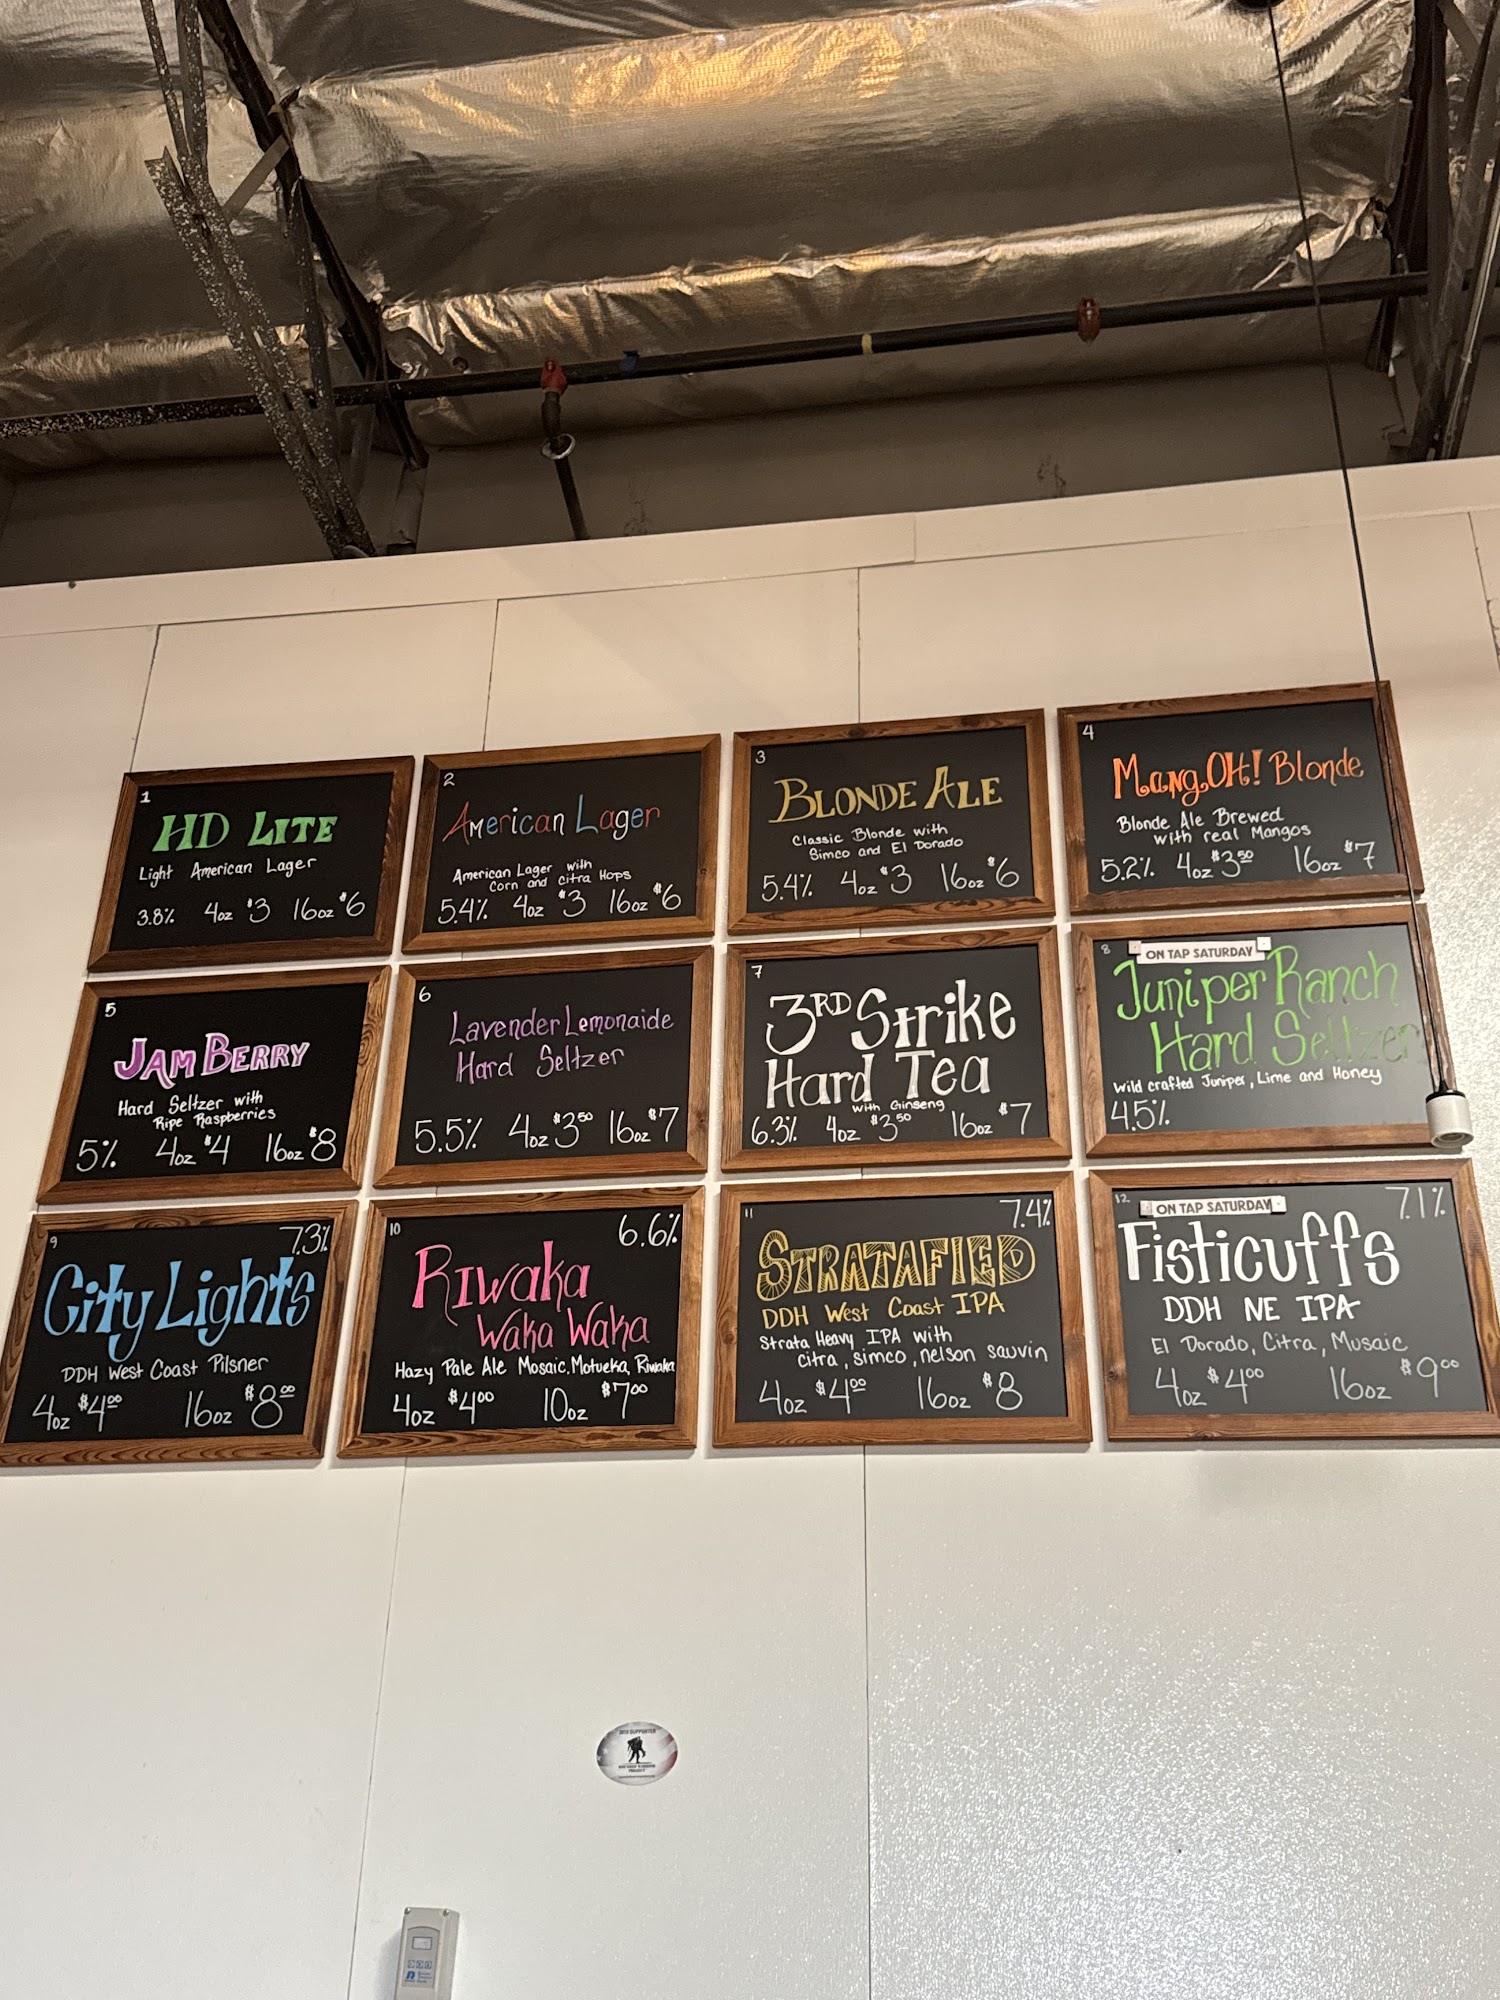 1
HD LITE
Light American Lager
3.8% 4oz $3 16oz $6
2
American Lager
American Lager with
Corn and Citra Hops
5.4% 4oz $3 16oz $6
3
BLONDE ALE
Classic Blonde with
Simco and El Dorado
5.4% 4oz $3 16oz $6
4
MangOH! Blonde
Blonde Ale Brewed
with real Mangos
5.2% 4oz $3.50 16oz $7
5
JAM BERRY
Hard Seltzer with
Ripe Raspberries
5% 4oz $4 16oz $8
6
Lavender Lemonaide
Hard Seltzer
5.5% 4oz $3.50 16oz $7
7
3RD Strike
Hard Tea
with Ginseng
6.3% 4oz $3.50 16oz $7
8
ON TAP SATURDAY
Juniper Ranch
Hard Seltzer
Wild crafted Juniper, Lime and Honey
4.5%
9
7.3%
City Lights
DDH West Coast Pilsner
4oz $4.00 16oz $8.00
10
6.6%
Riwaka
Waka Waka
Hazy Pale Ale Mosaic, Motueka, Riwaka
4oz $4.00 10oz $7.00
11
7.4%
STRATAFIED
DDH West Coast IPA
Strata Heavy IPA with
citra, simco, nelson sauvin
4oz $4.00 16oz $8
12
ON TAP SATURDAY
7.1%
Fisticuffs
DDH NE IPA
El Dorado, Citra, Musaic
4oz $4.00 16oz $9.00